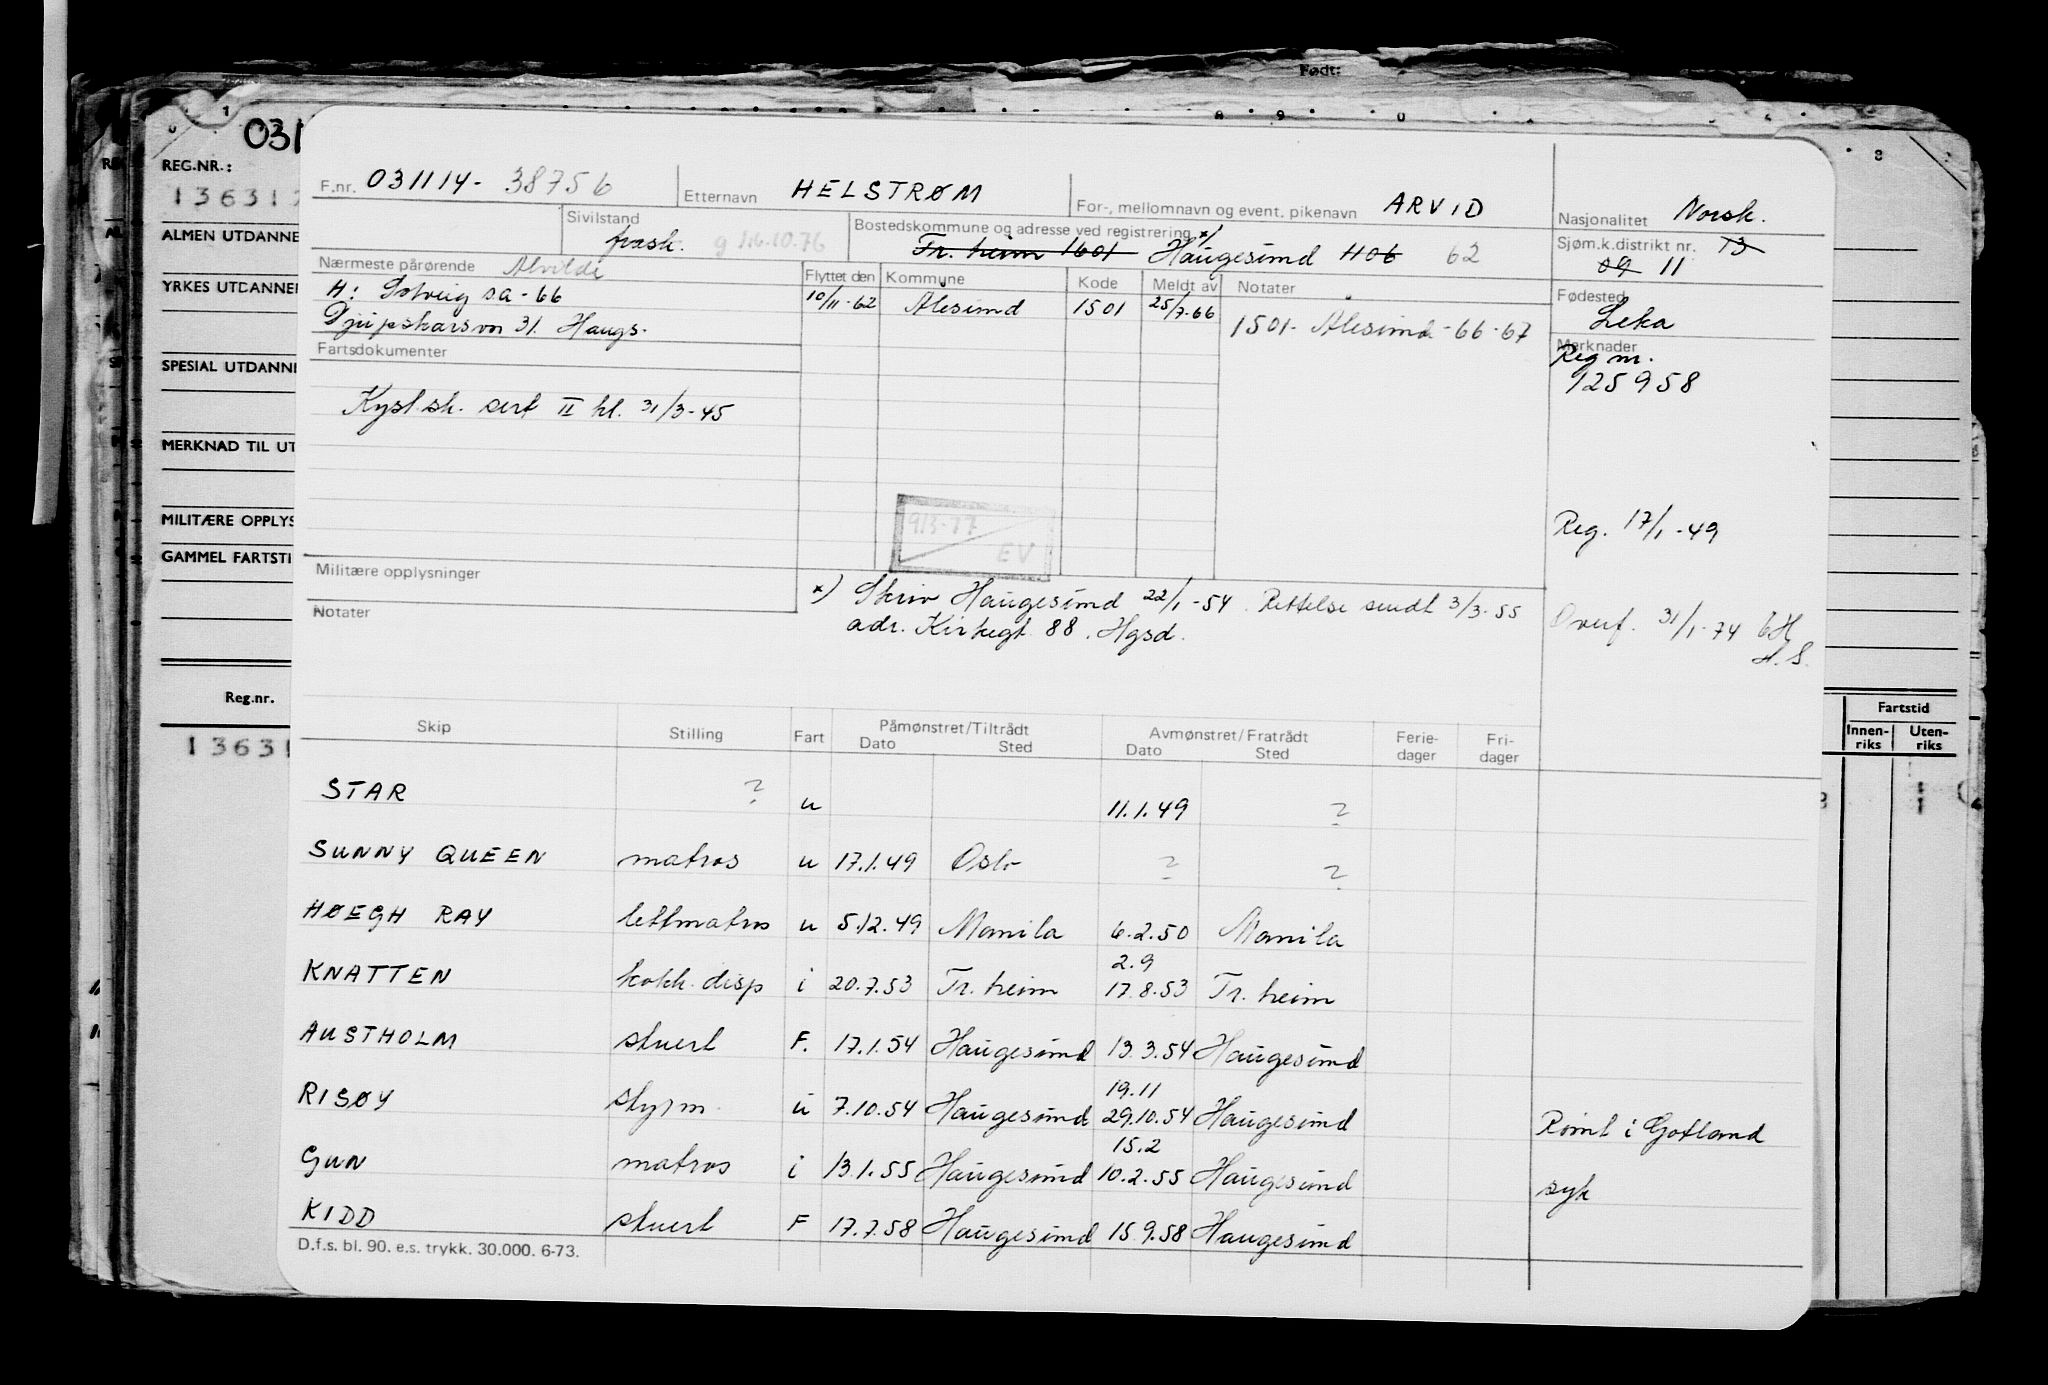 Født:
031
REG.NR.:
13631
ALMEN UTDANNE
YRKES UTDANNE
SPESIAL UTDANN
MERKNAD TIL UT
MILITÆRE OPPLYS
GAMMEL FARTSTI
Reg.nr.
13631
Fartstid
Innen-riks Uten-riks
F.nr. 031114-38756 Etternavn HELSTRØM For-, mellomnavn og event. pikenavn ARVID Nasjonalitet Norsk.
Sivilstand frask. g 16.10.76 Bostedskommune og adresse ved registrering *) Tr. heim 1601 Haugesund 1106 62 Sjøm.k.distrikt nr. 13
09 11
Nærmeste pårørende Alvilde
H: Solveig s.a - 66
Djupskarsvn 31. Haugs.
Flyttet den Kommune Kode Meldt av Notater
10/11-62 Ålesund 1501 25/7-66 1501- Ålesund -66-67
Fødested
Leka
Merknader
Reg nr.
125958
Fartsdokumenter
Kyst.sk. sert II kl. 31/3-45
913-77
EV
Reg. 17/1-49
Militære opplysninger
Notater
*) Skriv Haugesund 22/1-54. Rettelse sendt 3/3-55
adr. Kirkegt 88, Hgsd.
Overf. 31/1-74
Skip Stilling Fart Påmønstret/Tiltrådt Avmønstret/Fratrådt Ferie-dager Fri-dager
Dato Sted Dato Sted
STAR ? u 11.1.49 ?
SUNNY QUEEN matros u 17.1.49 Oslo ? ?
HØEGH RAY lettmatros u 5.12.49 Manila 6.2.50 Manila
2.9
KNATTEN kokk.disp i 20.7.53 Tr. heim 17.8.53 Tr. heim
AUSTHOLM stuert F. 17.1.54 Haugesund 13.3.54 Haugesund
19.11
RISØY styrm. u 7.10.54 Haugesund 29.10.54 Haugesund Rømt i Gotland
15.2
GUN matros i 13.1.55 Haugesund 10.2.55 Haugesund syk
KIDD stuert F 17.7.58 Haugesund 15.9.58 Haugesund
D.f.s. bl. 90. e.s. trykk. 30.000. 6-73.